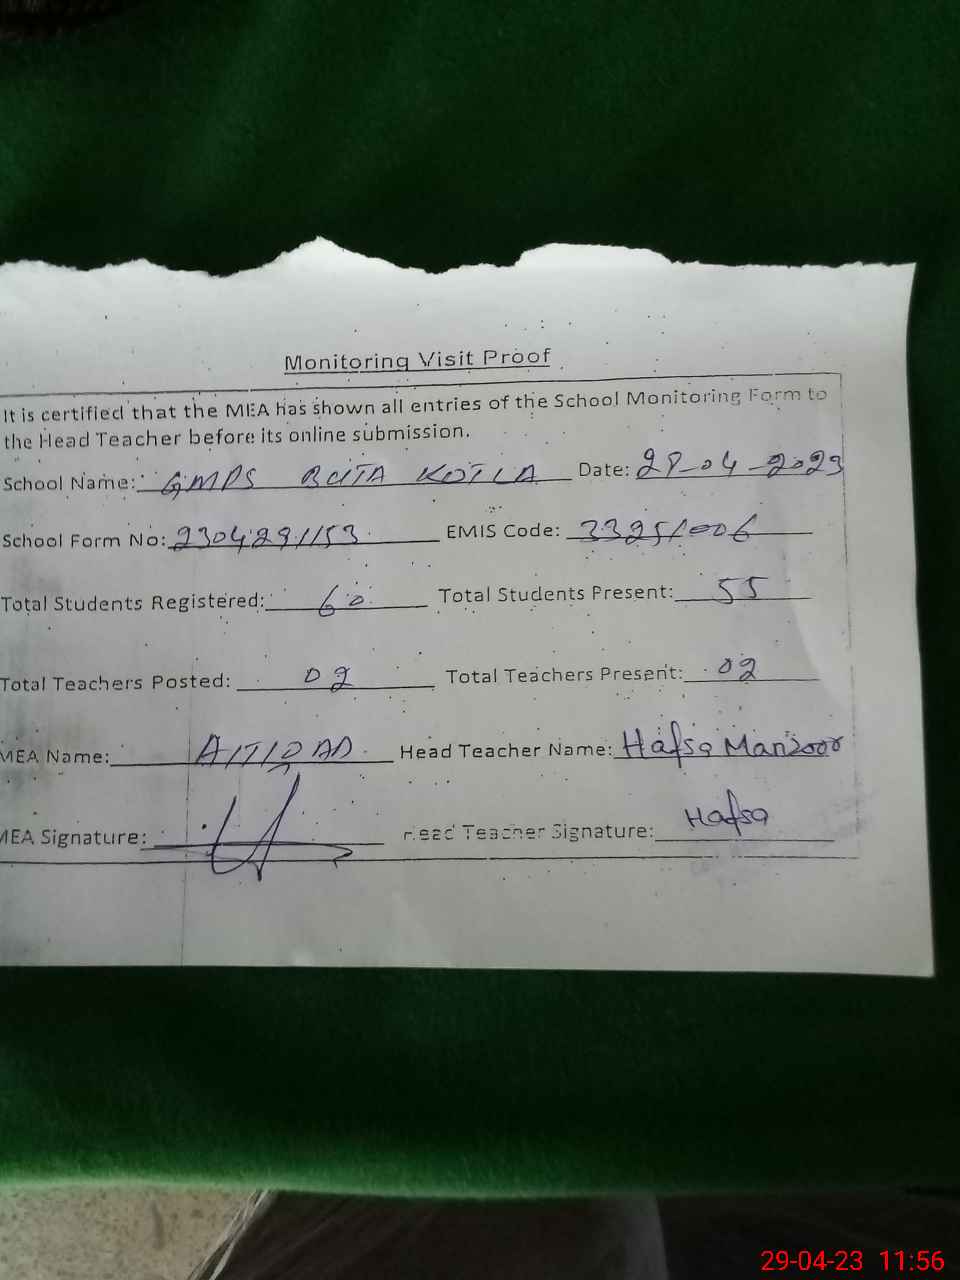 Monitoring Visit Proof
It is certified that the MEA has shown all entries of the School Monitoring Form to
the Head Teacher before its online submission.
School Name: GMPS BUTA KOTLA Date: 29-04-2023
School Form No: 2304291153 EMIS Code: 33251006
Total Students Registered: 60 Total Students Present: 55
Total Teachers Posted: 02 Total Teachers Present: 02
MEA Name: Head Teacher Name: Hafsa Manzoor
MEA Signature: Head Teacher Signature: Hafsa
29-04-23 11:56